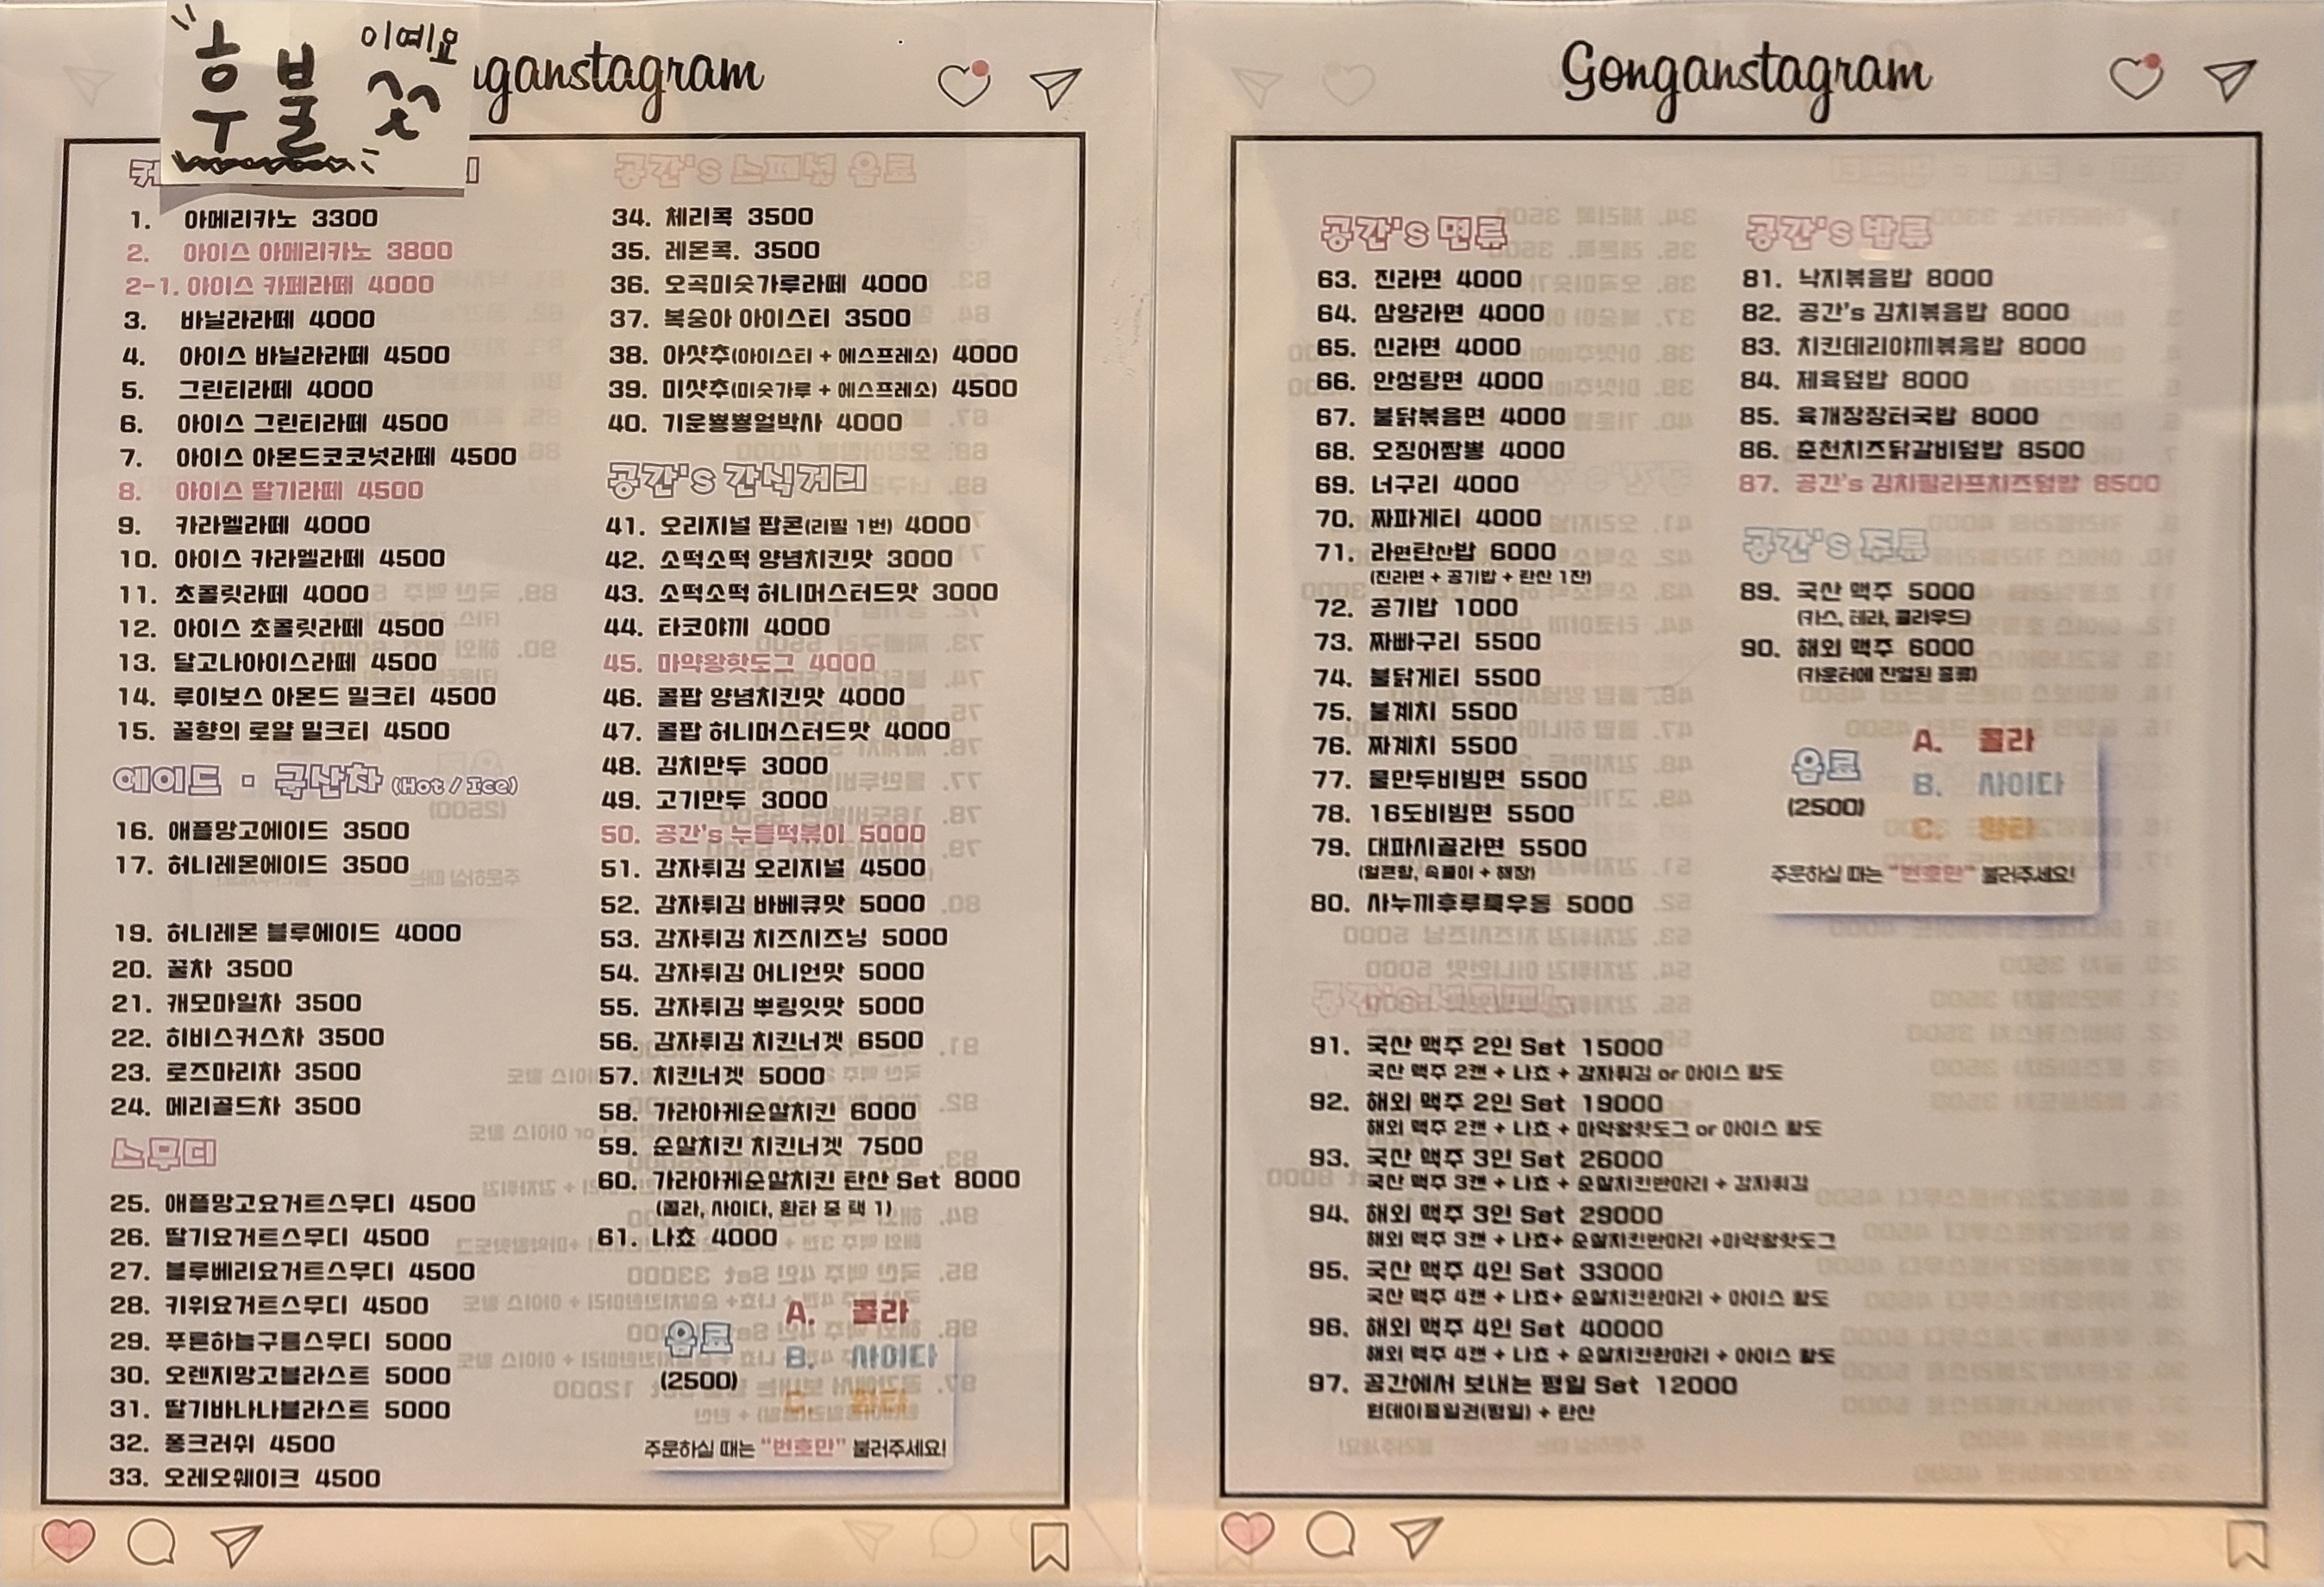 흥불 이예요
Gonganstagram
1. 아메리카노 3300
2. 아이스 아메리카노 3800
2-1. 아이스 카페라떼 4000
3. 바닐라라떼 4000
4. 아이스 바닐라라떼 4500
5. 그린티라떼 4000
6. 아이스 그린티라떼 4500
7. 아이스 아몬드코코넛라떼 4500
8. 아이스 딸기라떼 4500
9. 카라멜라떼 4000
10. 아이스 카라멜라떼 4500
11. 초콜릿라떼 4000
12. 아이스 초콜릿라떼 4500
13. 달고나아이스라떼 4500
14. 루이보스 아몬드 밀크티 4500
15. 꿀향의 로얄 밀크티 4500
에이드 · 국산차 (Hot / Ice)
16. 애플망고에이드 3500
17. 허니레몬에이드 3500
19. 허니레몬 블루에이드 4000
20. 꿀차 3500
21. 캐모마일차 3500
22. 히비스커스차 3500
23. 로즈마리차 3500
24. 메리골드차 3500
스무디
25. 애플망고요거트스무디 4500
26. 딸기요거트스무디 4500
27. 블루베리요거트스무디 4500
28. 키위요거트스무디 4500
29. 푸른하늘구름스무디 5000
30. 오렌지망고블라스트 5000
31. 딸기바나나블라스트 5000
32. 퐁크러쉬 4500
33. 오레오쉐이크 4500
공간's 스페셜 음료
34. 체리콕 3500
35. 레몬콕. 3500
36. 오곡미숫가루라떼 4000
37. 복숭아 아이스티 3500
38. 아샷추(아이스티 + 에스프레소) 4000
39. 미샷추(미숫가루 + 에스프레소) 4500
40. 기운뿅뿅얼박사 4000
공간's 간식거리
41. 오리지널 팝콘(리필 1번) 4000
42. 소떡소떡 양념치킨맛 3000
43. 소떡소떡 허니머스터드맛 3000
44. 타코야끼 4000
45. 마약왕핫도그 4000
46. 콜팝 양념치킨맛 4000
47. 콜팝 허니머스터드맛 4000
48. 김치만두 3000
49. 고기만두 3000
50. 공간's 누들떡볶이 5000
51. 감자튀김 오리지널 4500
52. 감자튀김 바베큐맛 5000
53. 감자튀김 치즈시즈닝 5000
54. 감자튀김 어니언맛 5000
55. 감자튀김 뿌링잇맛 5000
56. 감자튀김 치킨너겟 6500
57. 치킨너겟 5000
58. 가라아게순살치킨 6000
59. 순살치킨 치킨너겟 7500
60. 가라아게순살치킨 탄산 Set 8000
(콜라, 사이다, 환타 중 택 1)
61. 나쵸 4000
음료
(2500)
A. 콜라
B. 사이다
C. 환타
주문하실 때는 "번호만" 불러주세요!
Gonganstagram
공간's 면류
63. 진라면 4000
64. 삼양라면 4000
65. 신라면 4000
66. 안성탕면 4000
67. 불닭볶음면 4000
68. 오징어짬뽕 4000
69. 너구리 4000
70. 짜파게티 4000
71. 라면탄산밥 6000
(진라면 + 공기밥 + 탄산 1잔)
72. 공기밥 1000
73. 짜빠구리 5500
74. 불닭게티 5500
75. 불계치 5500
76. 짜계치 5500
77. 물만두비빔면 5500
78. 16도비빔면 5500
79. 대파시골라면 5500
(얼큰함, 속풀이 + 해장)
80. 사누끼후루룩우동 5000
공간's 밥류
81. 낙지볶음밥 8000
82. 공간's 김치볶음밥 8000
83. 치킨데리야끼볶음밥 8000
84. 제육덮밥 8000
85. 육개장장터국밥 8000
86. 춘천치즈닭갈비덮밥 8500
87. 공간's 김치필라프치즈덮밥 8500
공간's 주류
89. 국산 맥주 5000
(카스, 테라, 클라우드)
90. 해외 맥주 6000
(카운터에 진열된 종류)
음료
(2500)
A. 콜라
B. 사이다
C. 환타
주문하실 때는 "번호만" 불러주세요!
91. 국산 맥주 2인 Set 15000
국산 맥주 2캔 + 나쵸 + 감자튀김 or 아이스 황도
92. 해외 맥주 2인 Set 19000
해외 맥주 2캔 + 나쵸 + 마약왕핫도그 or 아이스 황도
93. 국산 맥주 3인 Set 26000
국산 맥주 3캔 + 나쵸 + 순살치킨반마리 + 감자튀김
94. 해외 맥주 3인 Set 29000
해외 맥주 3캔 + 나쵸+ 순살치킨반마리 +마약왕핫도그
95. 국산 맥주 4인 Set 33000
국산 맥주 4캔 + 나쵸+ 순살치킨한마리 + 아이스 황도
96. 해외 맥주 4인 Set 40000
해외 맥주 4캔 + 나쵸 + 순살치킨한마리 + 아이스 황도
97. 공간에서 보내는 평일 Set 12000
원데이종일권(평일) + 탄산